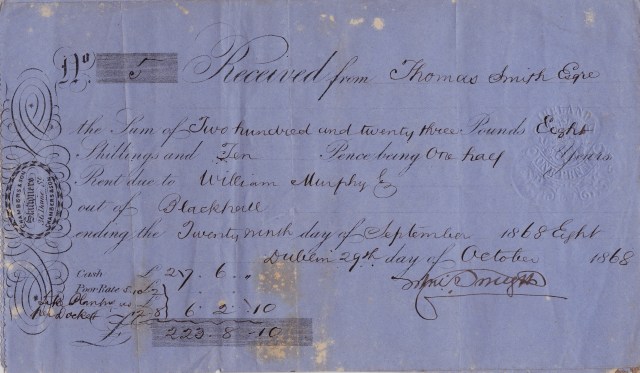 No. 5 Received from Thomas Smith Esqre
the Sum of Two hundred and twenty three Pounds Eight
Shillings and Ten Pence being One half Years
Rent due to William Murphy
out of Blackhall
ending the Twenty ninth day of September 1868 Eight
Dublin 29th day of October 1868
Cash £ 217. 6. ..
Poor Rate
6 2 10
£ 223 - 8 - 10
Stationers